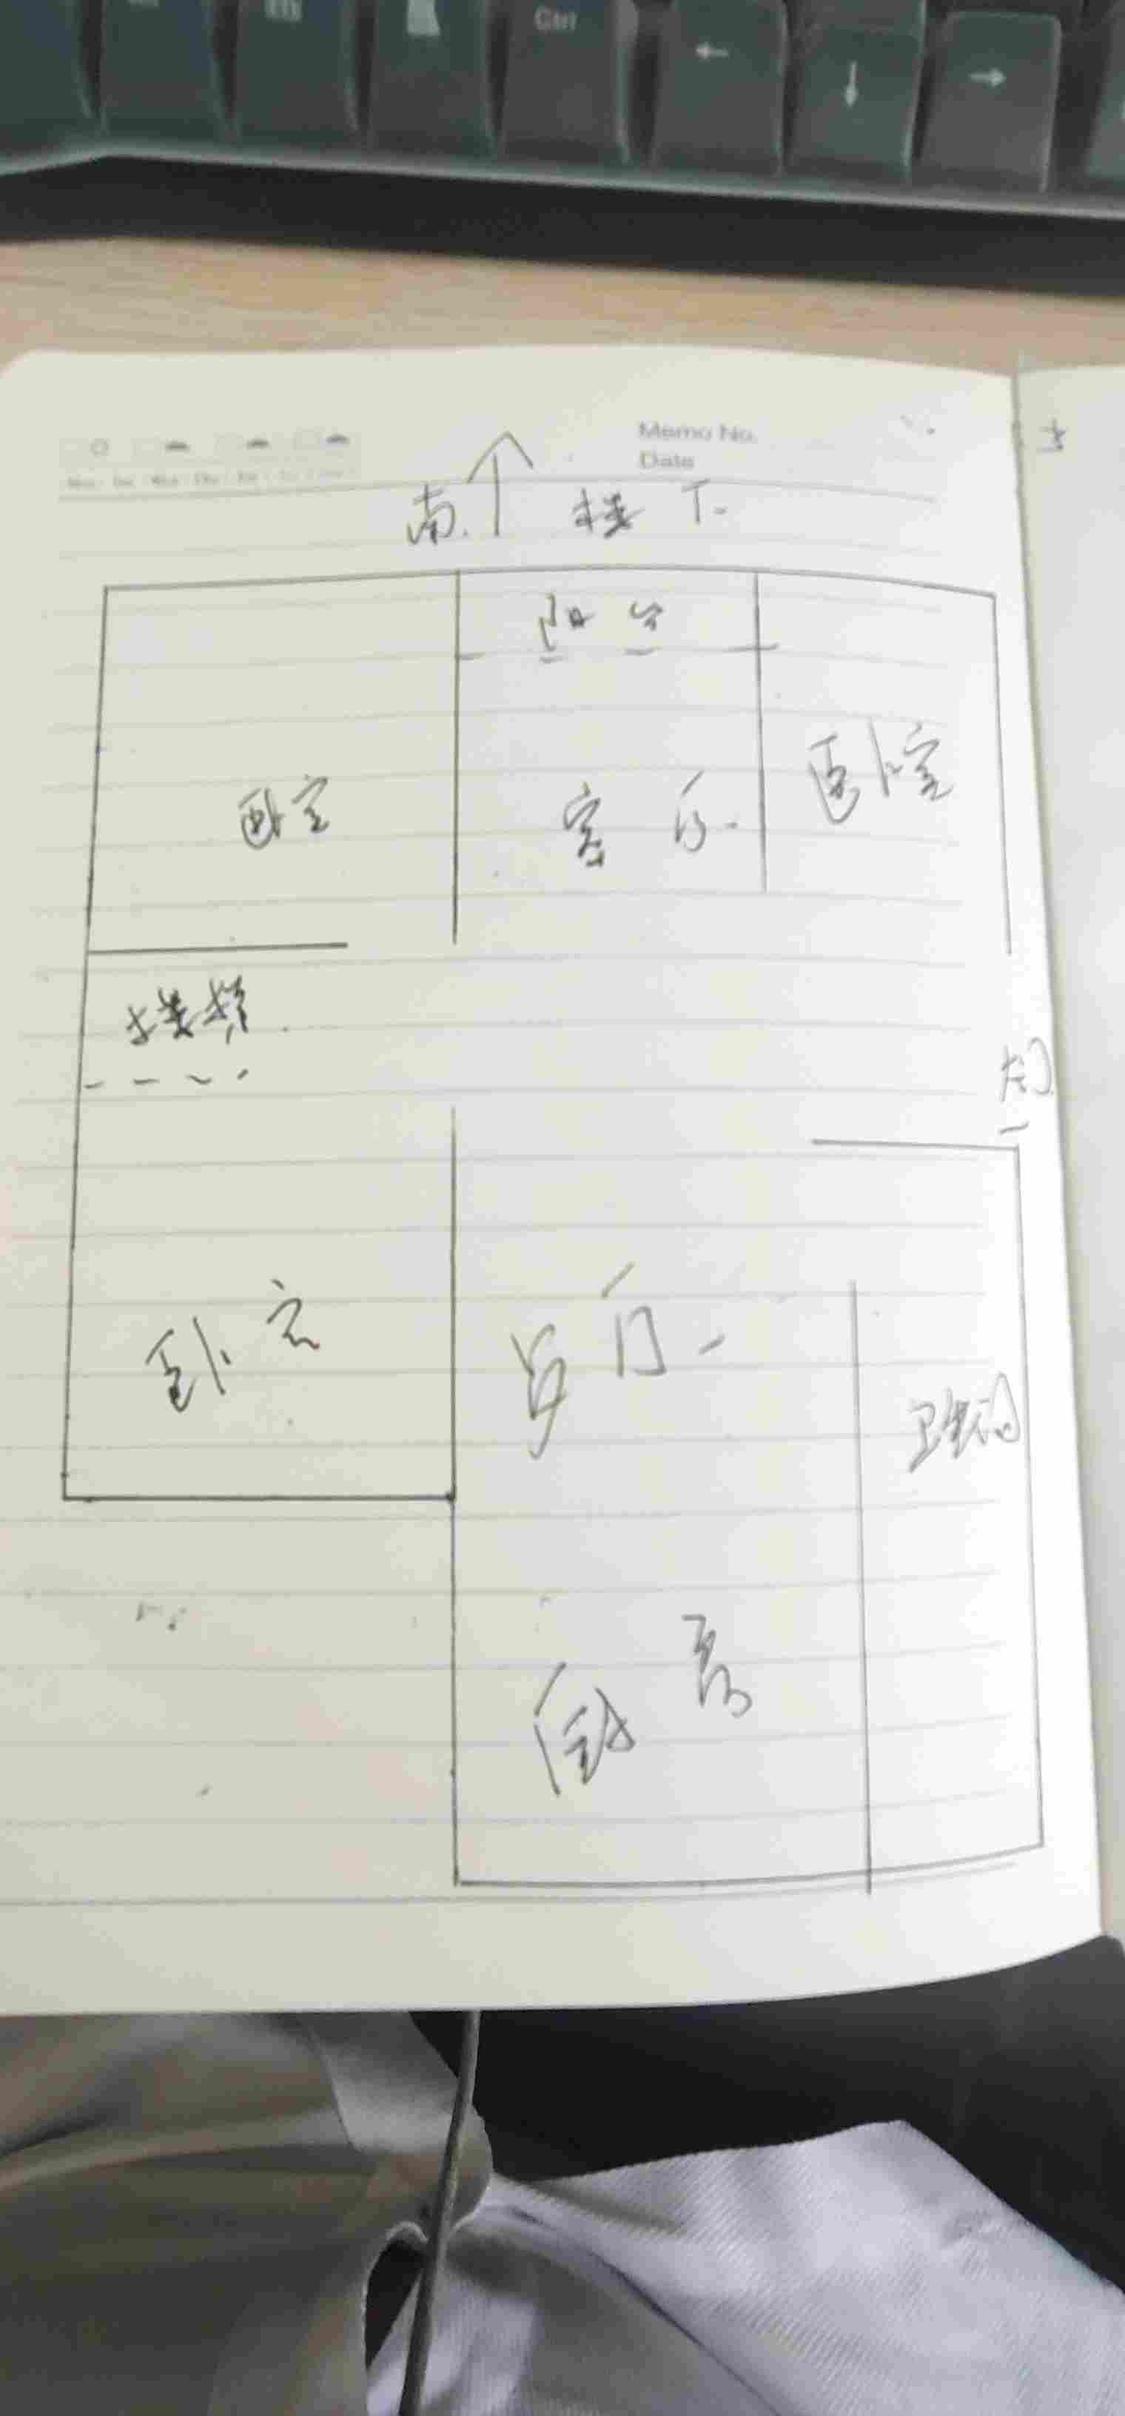 Ctrl
←
↓
→
Memo No.
Date
南 ↑ 楼下
阳台
卧室
客厅
卧室
楼梯
大门
卧室
卫生间
厨房